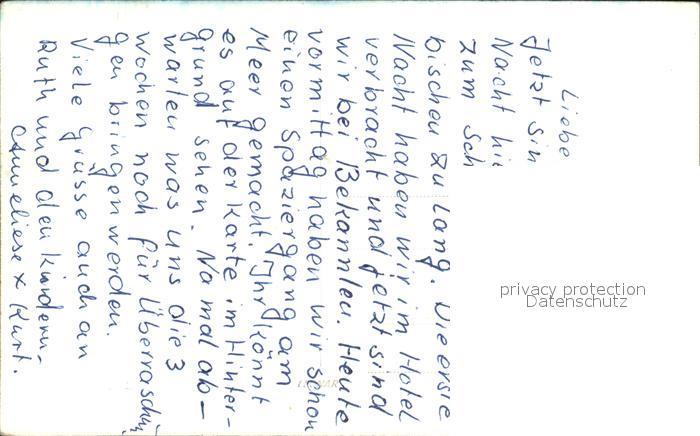 Liebe
Jetzt sin
Nacht hi
zum Sch
bischen zu lang. Die erste
Nacht haben wir im Hotel
verbracht und jetzt sind
wir bei Bekannten. Heute
vormittag haben wir schon
einen Spaziergang am
Meer gemacht. Ihr könnt
es auf der Karte im Hinter-
grund sehen. Na mal ab-
warten was uns die 3
wochen noch für Überraschun
gen bringen werden.
Viele Grüsse auch an
Ruth und den Kindern.
Anneliese + Kurt.
privacy protection
Datenschutz